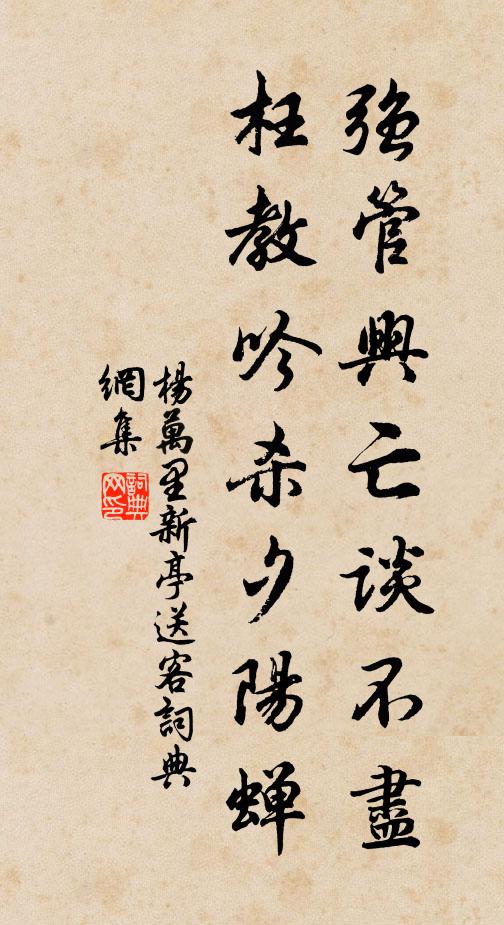 強管興亡談不盡
枉教吟杀夕陽蝉
楊萬里新亭送客詞典
網集
詞典
网印